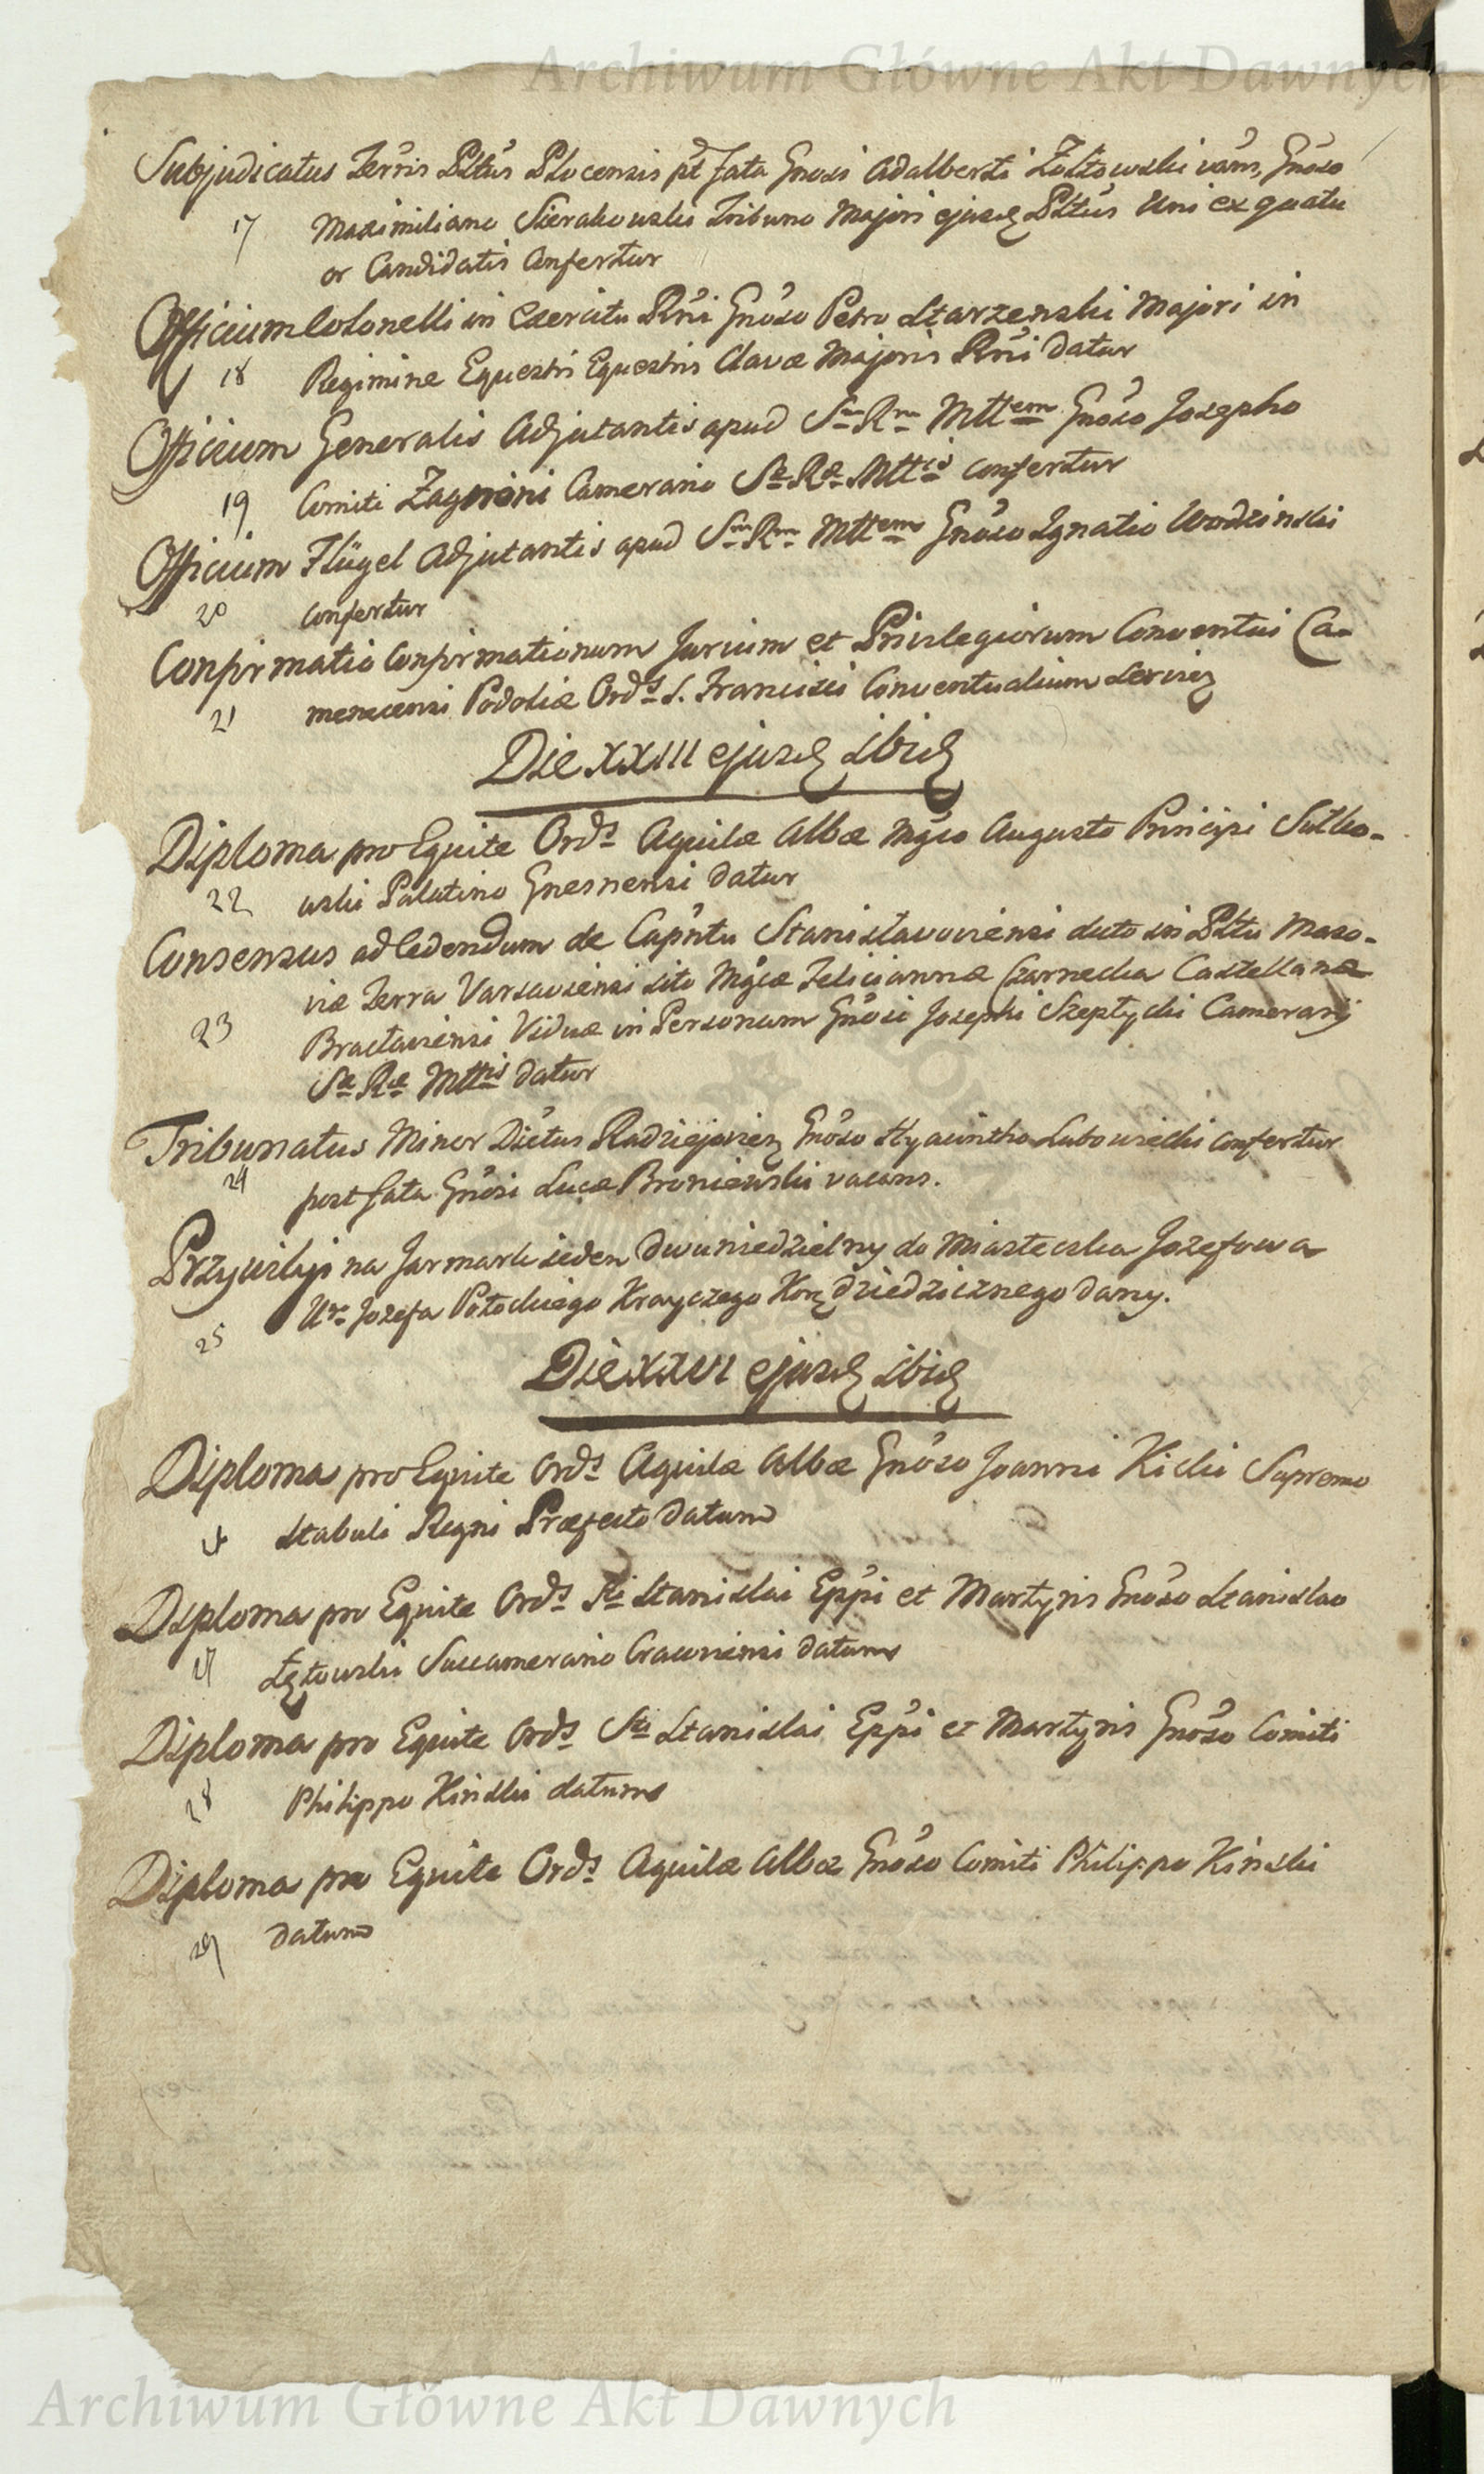 Archiwum Główne Akt Dawnych
Subjudicatus Terris Pltus Plocensis pt fata Gnosi Adalberti Zołtowski vans, Gnoso
17 Maximiliano Sierakowski Tribuno Majori ejusd Pltus Uni ex quatu
or Candidatis Confertur
Officium Colonelli in Exercitu Rni Gnoso Petro Starzenski Majori in
18 Regimine Equestri Equestris Clavæ Majoris Rni datur
Officium Generalis Adjutantis apud Sm Rm Mttem Gnoso Josepho
19 Comiti Zagwoni Camerario Sæ Ræ Mttis confertur
Officium Flügel Adjutantis apud Sm Rm Mttem Gnoso Ignatio Wodzinski
20 confertur
Confirmatio Confirmationum Jurium et Privilegiorum Conventui Ca-
21 menecensi Podoliæ Ords S. Francisci Conventualium servien
Die XXIII ejusd ibid
Diploma pro Equite Ords Aquilæ Albæ Mgco Augusto Principi Sulko-
22 wski Palatino Gnesnensi datur
Consensus ad Cedendum de Capntu Stanisławoviensi dicto in Pltu Maso-
viæ Terra Varsaviensi sito Mgcæ Feliciannæ Czarnecka Castellanæ
23 Bracłaviensi Viduæ in Personam Gnosi Josephi Szeptycki Camerarij
Sæ Ræ Mttis datur
Tribunatus Minor Dictus Radziejovien Gnoso Hyacintho Lubowiecki confertur
24 post fata Gnosi Lucæ Broniewski vacans.
Przywiley na Jarmark ieden dwuniedzielny do Miasteczka Jozefowa
25 Ur Jozefa Potockiego Krayczego Kor dziedzicznego dany.
Die XXVI ejusd ibid
Diploma pro Equite Ords Aquilæ Albæ Gnoso Joanni Kicki Supremo
26 Stabuli Regni Præfecto datum
Diploma pro Equite Ords Sti Stanislai Eppi et Martyris Gnoso Stanislao
27 Łętowski Succamerario Cracoviensi datum
Diploma pro Equite Ords Sti Stanislai Eppi et Martyris Gnoso Comiti
28 Philippo Kinski datum
Diploma pro Equite Ords Aquilæ Albæ Gnoso Comiti Philippo Kinski
29 datum
Archiwum Główne Akt Dawnych